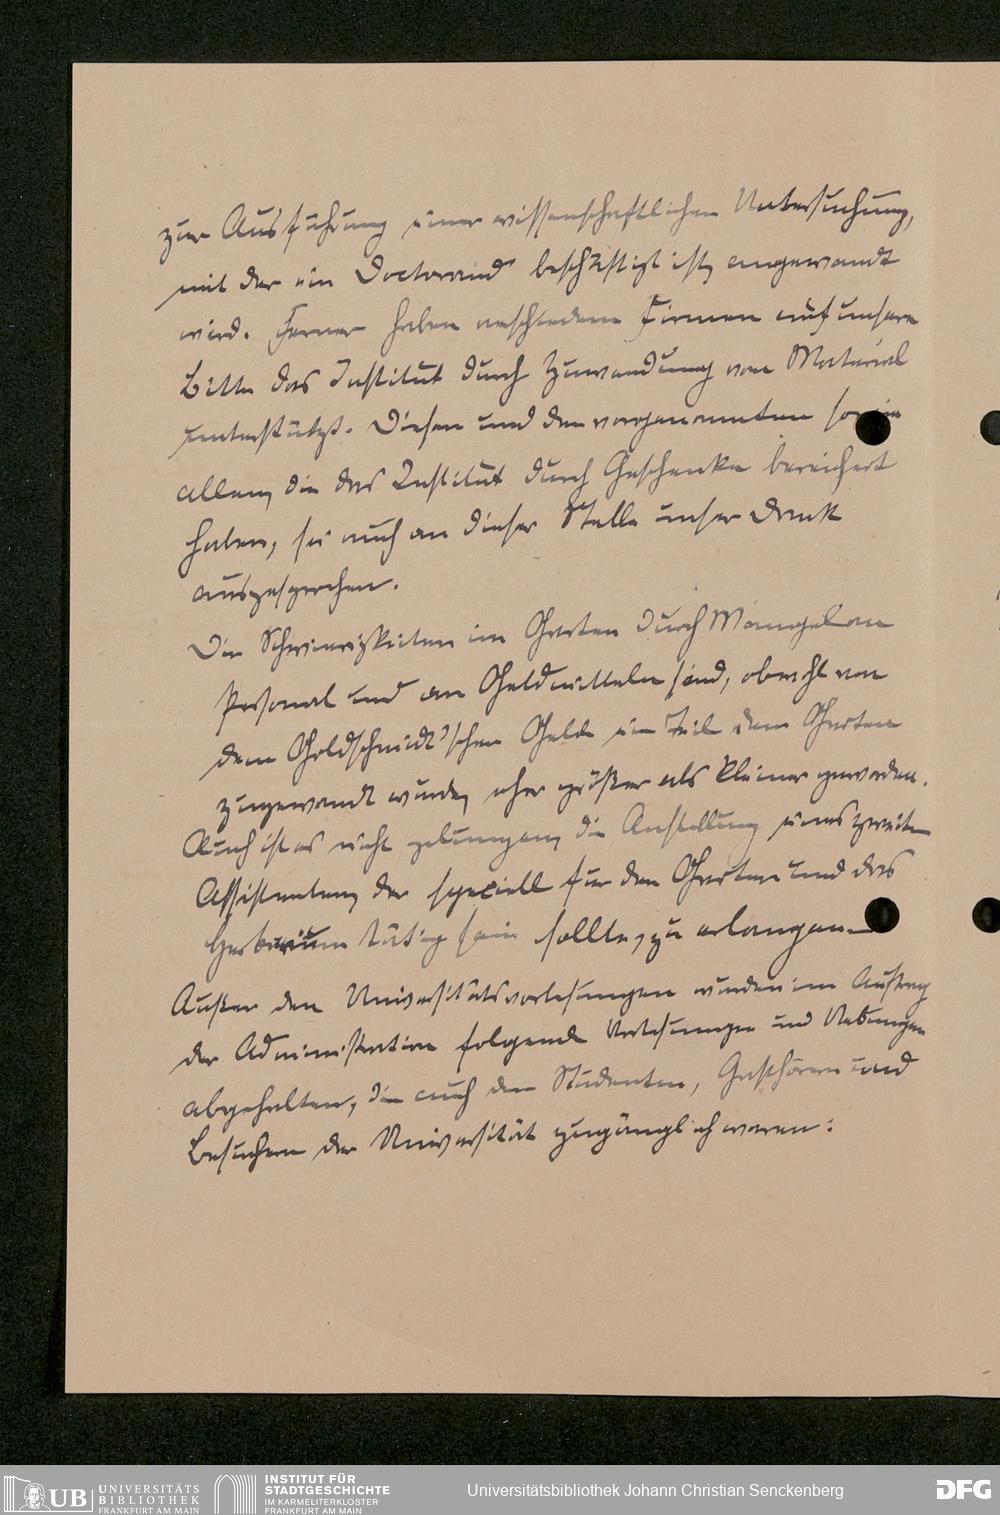 zur Ausführung einer wissenschaftlichen Untersuchung,
mit der ein Doctorand beschäftigt ist, angewandt
wird. Ferner haben verschiedene Firmen auf unsere
Bitte das Institut durch Zuwendung von Material
unterstützt. Diesen und den vorgenannten sowie
allen, die das Institut durch Geschenke bereichert
haben, sei auch an dieser Stelle unser Dank
ausgesprochen.
Die Schwierigkeiten im Garten durch Mangel an
Personal und an Geldmitteln sind, obwohl von
dem Goldschmidt'schen Gelde ein Teil dem Garten
zugewandt wurde, eher größer als kleiner geworden.
Auch ist es nicht gelungen, die Anstellung eines zweiten
Assistenten, der speziell für den Garten und das
Herbarium tätig sein sollte, zu erlangen.
Außer den Universitätsvorlesungen wurden im Auftrag
der Administration folgende Vorlesungen und Uebungen
abgehalten, die auch den Studenten, Gasthörern und
Besuchern der Universität zugänglich waren:
UB UNIVERSITÄTS
BIBLIOTHEK
FRANKFURT AM MAIN
INSTITUT FÜR
STADTGESCHICHTE
IM KARMELITERKLOSTER
FRANKFURT AM MAIN
Universitätsbibliothek Johann Christian Senckenberg
DFG